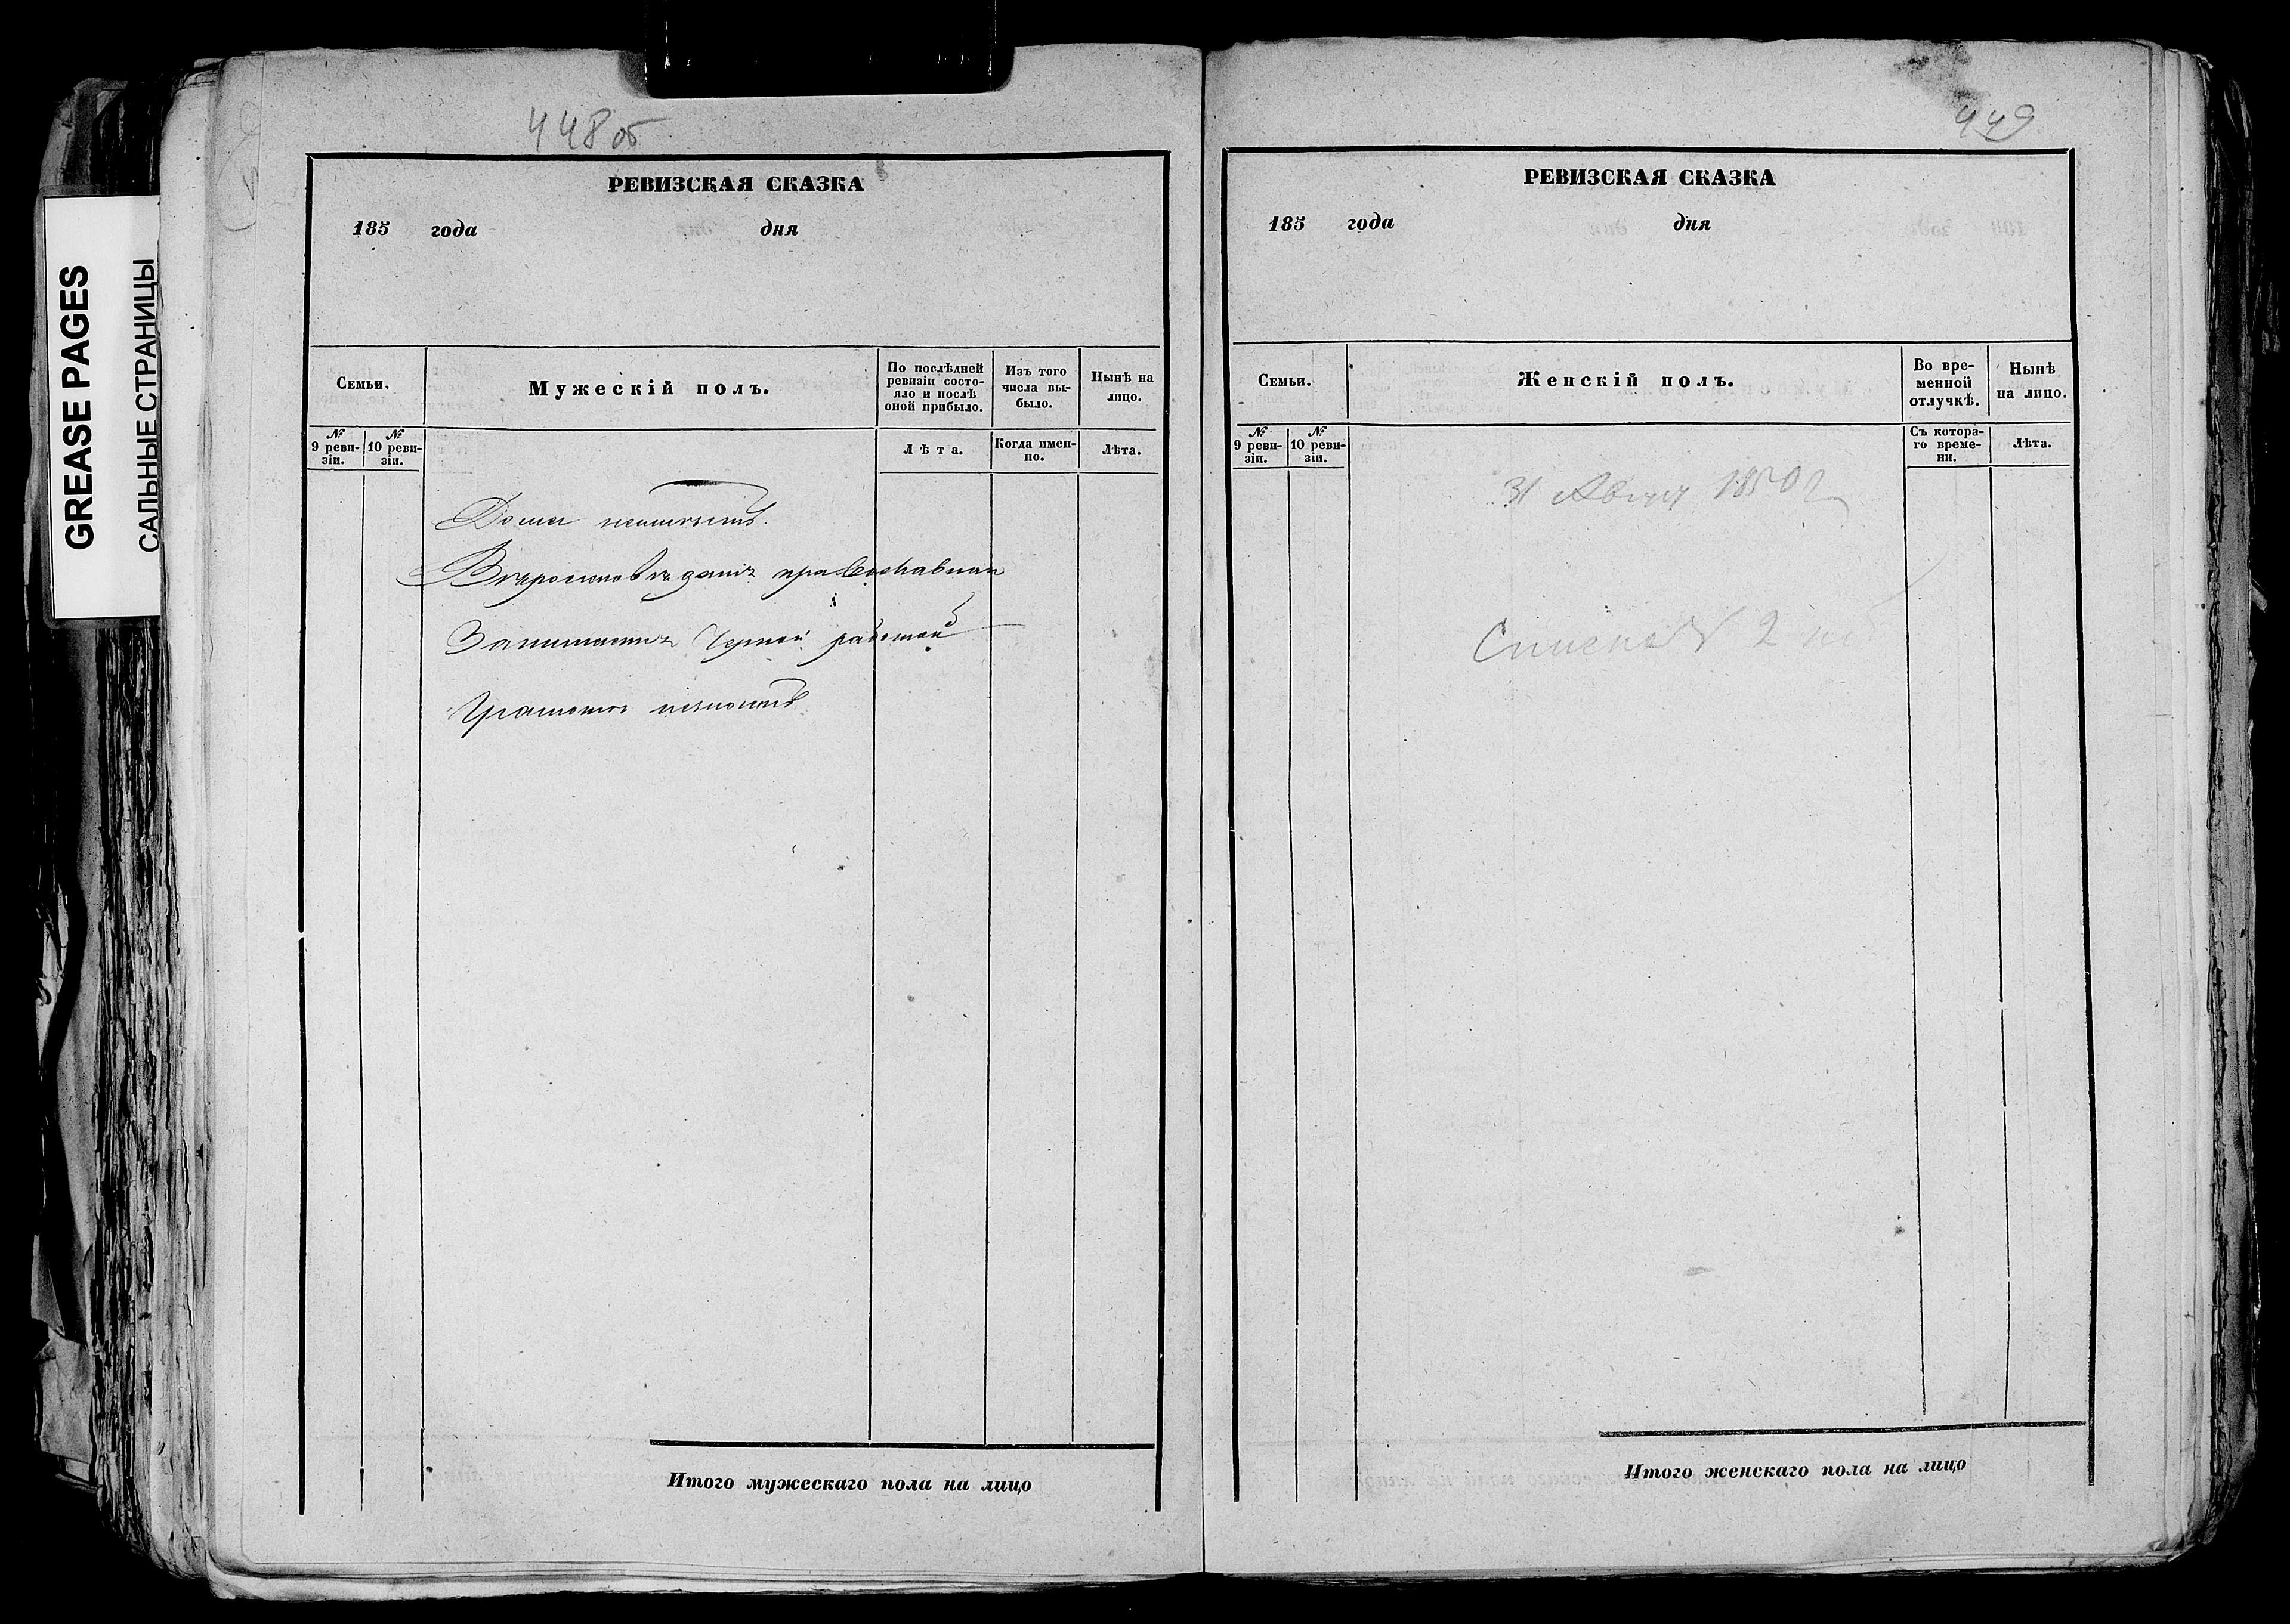 GREASE PAGES
САЛЬНЫЕ СТРАНИЦЫ
448об
РЕВИЗСКАЯ СКАЗКА
185 года дня
Семьи.
Мужескій полъ.
По послѣдней ревизіи состояло и послѣ оной прибыло.
Изъ того числа выбыло.
Нынѣ на лицо.
№ 9 ревизіи.
№ 10 ревизіи.
Лѣта.
Когда именно.
Лѣта.
Дома
Вѣроисповѣданія православнаго
Занимаются Черной работой
Грамоты
Итого мужескаго пола на лицо
449
РЕВИЗСКАЯ СКАЗКА
185 года дня
Семьи.
Женскій полъ.
Во временной отлучкѣ.
Нынѣ на лицо.
№ 9 ревизіи.
№ 10 ревизіи.
Съ котораго времени.
Лѣта.
31 Август 1850 г
2
Итого женскаго пола на лицо